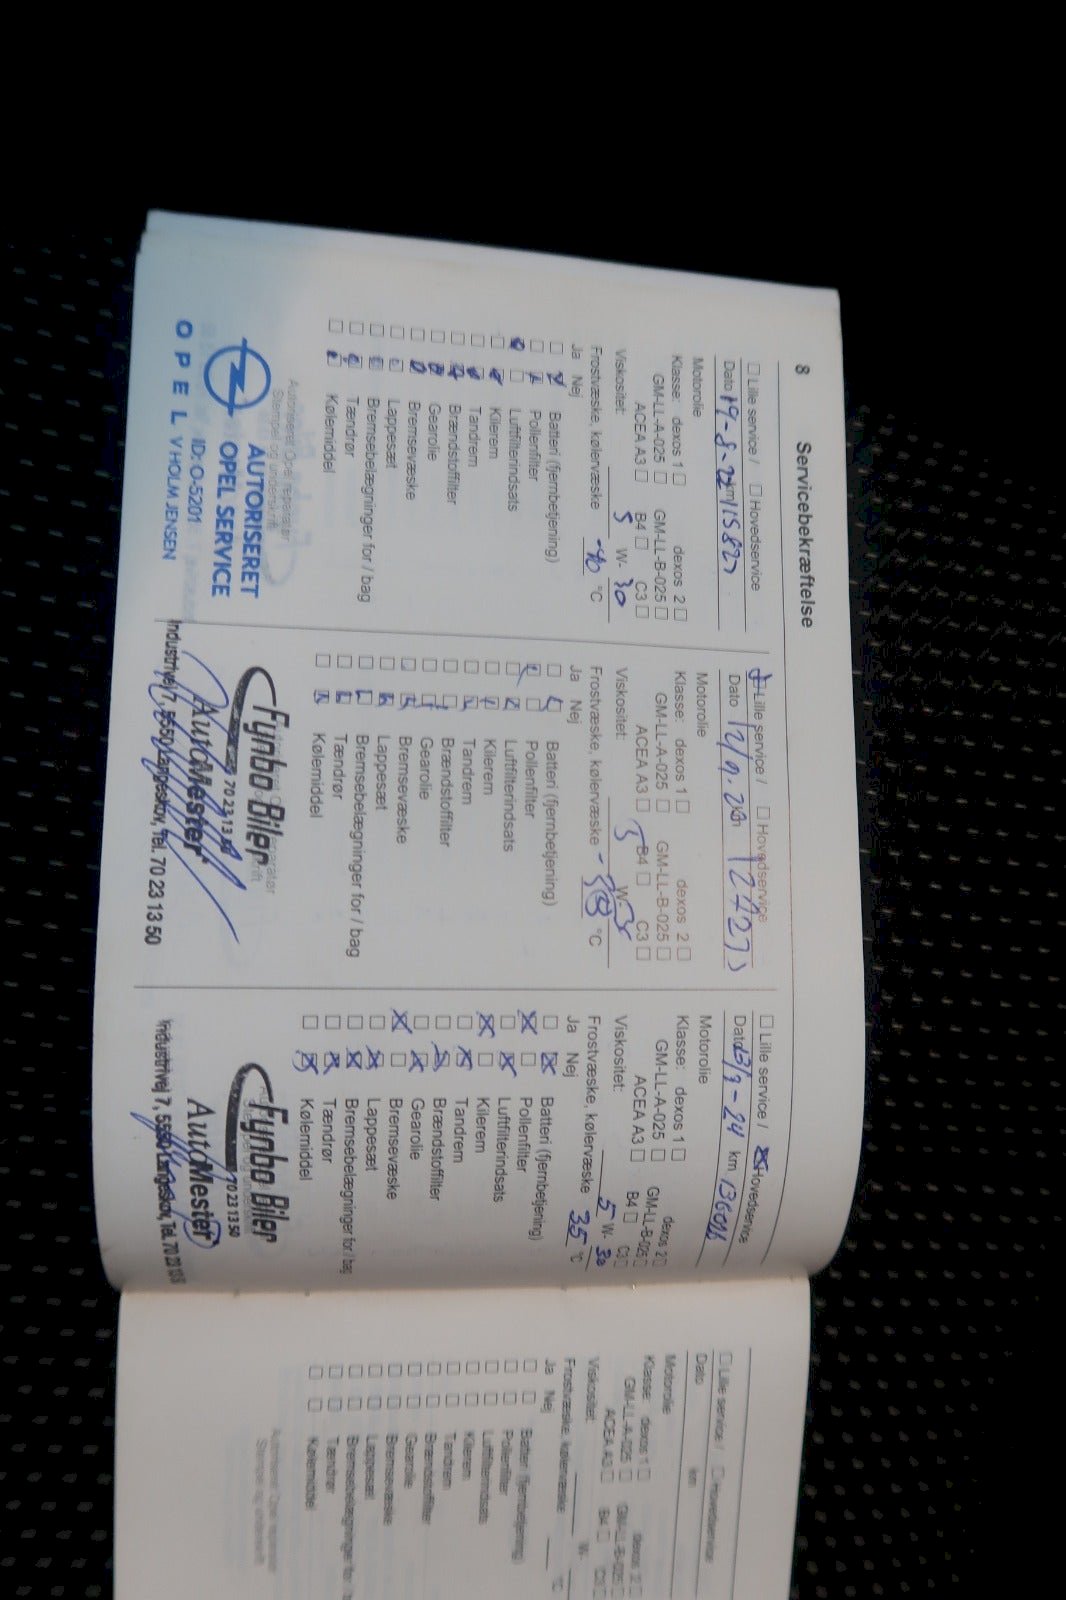 8 Servicebekræftelse
☐ Lille service / ☐ Hovedservice
Dato 19-8-22 km 115827
Motorolie
Klasse: dexos 1 ☐ dexos 2 ☐
GM-LL-A-025 ☐ GM-LL-B-025 ☐
ACEA A3 ☐ B4 ☐ C3 ☐
Viskositet: 5 W- 30
Frostvæske, kølervæske -40 °C
Ja Nej
☐ ☒ Batteri (fjernbetjening)
☐ ☒ Pollenfilter
☒ ☐ Luftfilterindsats
☐ ☒ Kilerem
☐ ☒ Tandrem
☐ ☒ Brændstoffilter
☐ ☒ Gearolie
☐ ☒ Bremsevæske
☐ ☒ Lappesæt
☐ ☒ Bremsebelægninger for / bag
☐ ☒ Tændrør
☐ ☒ Kølemiddel
Autoriseret Opel reparatør
Stempel og underskrift
AUTORISERET
OPEL SERVICE
ID: O-5201
OPEL V HOLM JENSEN
☒ Lille service / ☐ Hovedservice
Dato 12/9. km 127273
Motorolie
Klasse: dexos 1 ☐ dexos 2 ☐
GM-LL-A-025 ☐ GM-LL-B-025 ☐
ACEA A3 ☐ B4 ☐ C3 ☐
Viskositet: 5 W-
Frostvæske, kølervæske °C
Ja Nej
☐ ☒ Batteri (fjernbetjening)
☒ ☐ Pollenfilter
☐ ☒ Luftfilterindsats
☐ ☒ Kilerem
☐ ☒ Tandrem
☐ ☒ Brændstoffilter
☐ ☒ Gearolie
☐ ☒ Bremsevæske
☐ ☒ Lappesæt
☐ ☒ Bremsebelægninger for / bag
☐ ☒ Tændrør
☐ ☒ Kølemiddel
Fynbo Biler
70 23 13 50
AutoMester
Industrivej 7, 5550 Langeskov, Tel. 70 23 13 50
☐ Lille service / ☒ Hovedservice
Dato 13/9-24 km 136016
Motorolie
Klasse: dexos 1 ☐ dexos 2 ☐
GM-LL-A-025 ☐ GM-LL-B-025 ☐
ACEA A3 ☐ B4 ☐ C3 ☐
Viskositet: 5 W- 30
Frostvæske, kølervæske 35 °C
Ja Nej
☐ ☒ Batteri (fjernbetjening)
☒ ☐ Pollenfilter
☐ ☒ Luftfilterindsats
☒ ☐ Kilerem
☐ ☒ Tandrem
☐ ☒ Brændstoffilter
☐ ☒ Gearolie
☒ ☐ Bremsevæske
☐ ☒ Lappesæt
☐ ☒ Bremsebelægninger for / bag
☐ ☒ Tændrør
☐ ☒ Kølemiddel
Fynbo Biler
70 23 13 50
AutoMester
Industrivej 7, 5550 Langeskov, Tel. 70 23 13 5
☐ Lille service / ☐ Hovedservice
Dato km
Motorolie
Klasse: dexos 1 ☐ dexos 2 ☐
GM-LL-A-025 ☐ GM-LL-B-025 ☐
ACEA A3 ☐ B4 ☐ C3 ☐
Viskositet: W-
Frostvæske, kølervæske °C
Ja Nej
☐ ☐ Batteri (fjernbetjening)
☐ ☐ Pollenfilter
☐ ☐ Luftfilterindsats
☐ ☐ Kilerem
☐ ☐ Tandrem
☐ ☐ Brændstoffilter
☐ ☐ Gearolie
☐ ☐ Bremsevæske
☐ ☐ Lappesæt
☐ ☐ Bremsebelægninger for / b
☐ ☐ Tændrør
☐ ☐ Kølemiddel
Autoriseret Opel reparatør
Stempel og underskrift